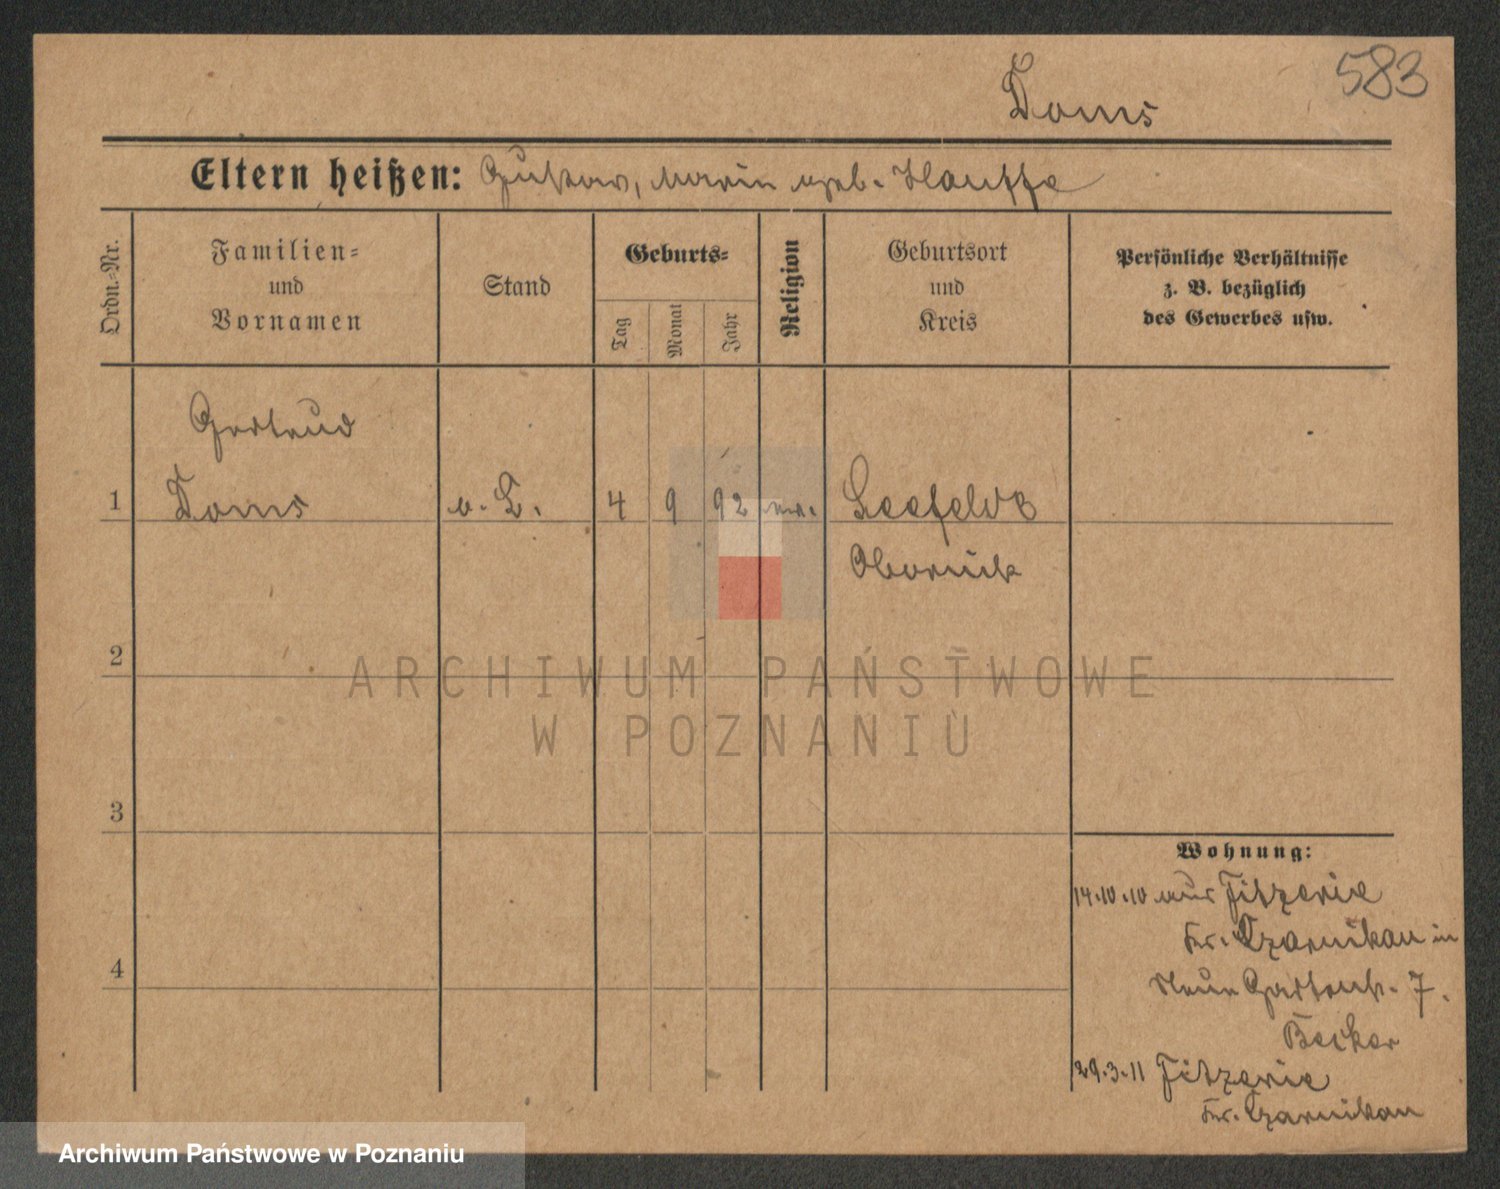 583
Doms
Eltern heißen: Gustav, Marie geb. Hauffe
Ordn.=Nr.
Familien=
und
Vornamen
Stand
Geburts=
Tag
Monat
Jahr
Religion
Geburtsort
und
Kreis
Persönliche Verhältnisse
z. B. bezüglich
des Gewerbes usw.
Gertrud
1 Doms o. B. 4 9 92 ev. Seefeld
Obornik
2
ARCHIWUM PAŃSTWOWE
W POZNANIU
3
Wohnung:
14.10.10 aus Fitzerie
Kr. Czarnikau in
4
Neue Gartenst. 7.
Becker
29.3.11 Fitzerie
Kr. Czarnikau
Archiwum Państwowe w Poznaniu